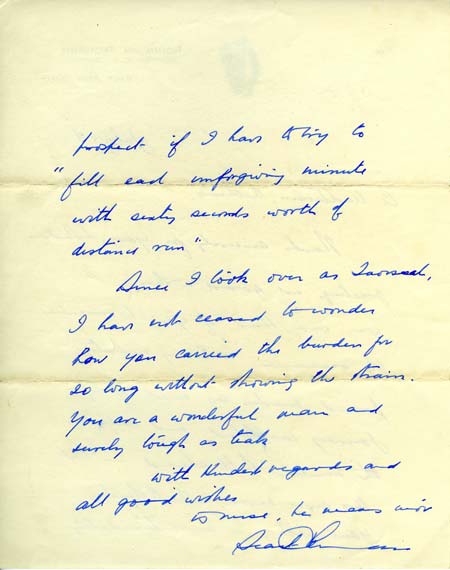 prospect if I have to try to
"fill each unforgiving minute
with sixty seconds worth of
distance run"
Since I took over as Taoiseach,
I have not ceased to wonder
how you carried the burden for
so long without showing the strain.
You are a wonderful man and
surely tough as teak
with kindest regards and
all good wishes
is mise, le meas mór
Seán